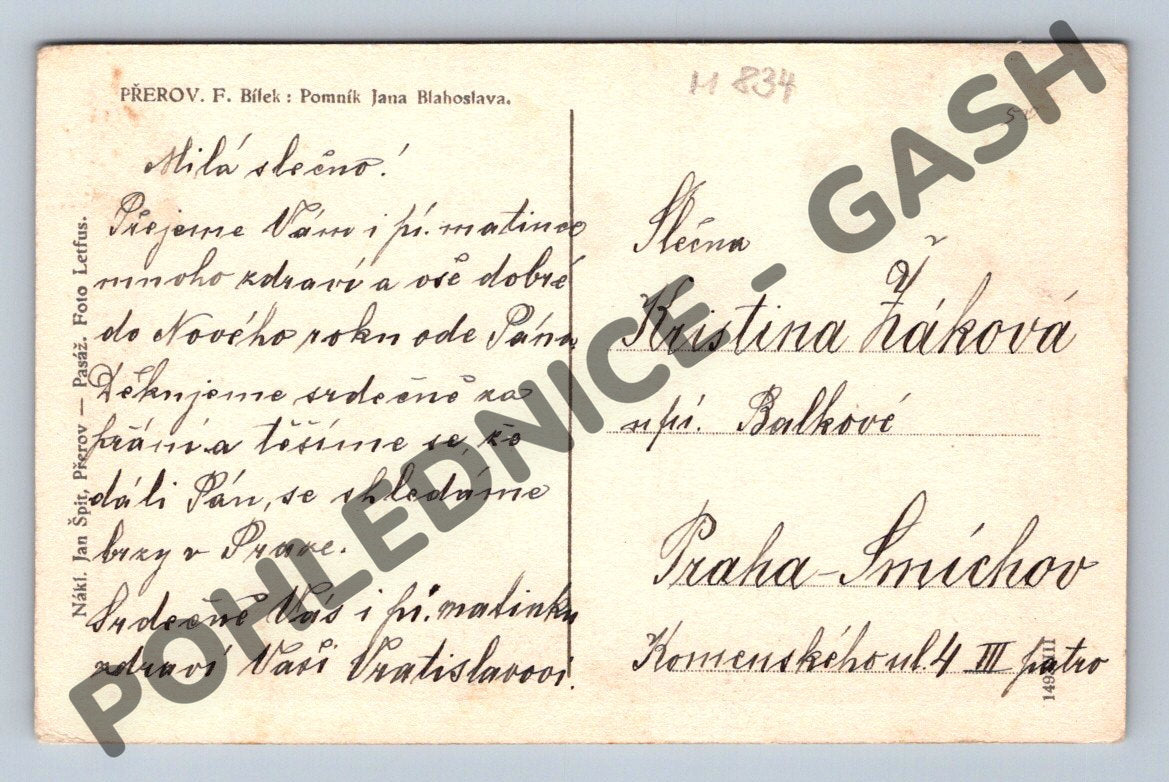 PŘEROV. F. Bílek: Pomník Jana Blahoslava.
M 834
Milá slečno!
Přejeme Vám i pí. matince
mnoho zdraví a vše dobré
do Nového roku ode Pána
Děkujeme srdečně za
přání a těšíme se, že
dá-li Pán, se shledáme
brzy v Praze.
Srdečně Vás i pí. matinku
zdraví Vaši Vratislavovi.
Slečna
Kristina Žáková
u pí. Balkové
Praha-Smíchov
Komenského ul. 4 III patro
Nákl. Jan Špit, Přerov — Pasáž. Foto Letfus.
POHLEDNICE - GASH